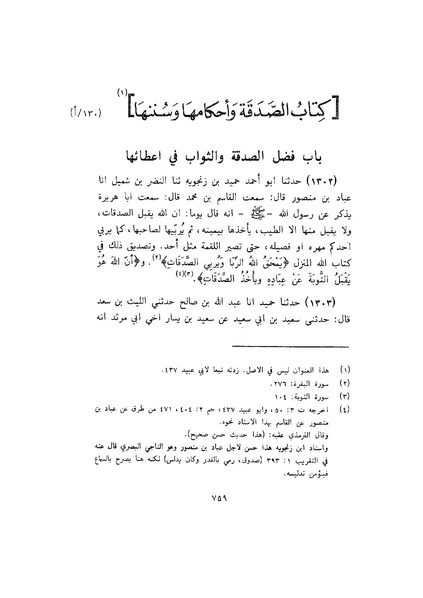 [كِتَابُ الصَّدَقَة وَأحكامها وَسُننهَا] (١) (١٣٠/أ)
باب فضل الصدقة والثواب في اعطائها
(١٣٠٢) حدثنا ابو أحمد حميد بن زنجويه ثنا النضر بن شميل انا
عباد بن منصور قال: سمعت القاسم بن محمد قال: سمعت ابا هريرة
يذكر عن رسول الله -ﷺ- انه قال يوما: ان الله يقبل الصدقات،
ولا يقبل منها الا الطيب، يأخذها بيمينه، ثم يُربّيها لصاحبها، كما يربي
احدكم مهره او فصيله، حتى تصير اللقمة مثل أحد. وتصديق ذلك في
كتاب الله المنزل ﴿يَمْحَقُ اللهُ الرِّبَا وَيُربِي الصَّدَقَاتِ﴾(٢). و﴿أنَّ اللهَ هُوَ
يَقْبَلُ التَّوبَةَ عَنْ عِبَادِهِ ويأخُذُ الصَّدَقَاتِ﴾.(٣)(٤)
(١٣٠٣) حدثنا حميد انا عبد الله بن صالح حدثني الليث بن سعد
قال: حدثني سعيد بن ابي سعيد عن سعيد بن يسار اخي ابي مرثد انه
(١) هذا العنوان ليس في الاصل. زدته تبعا لابي عبيد ٤٣٧.
(٢) سورة البقرة: ٢٧٦.
(٣) سورة التوبة: ١٠٤
(٤) اخرجه ت ٣: ٥٠، وابو عبيد ٤٣٧، حم ٢: ٤٠٤، ٤٧١ من طرق عن عباد بن
منصور عن القاسم بهذا الاسناد نحوه.
وقال الترمذي عقبه: (هذا حديث حسن صحيح).
واسناد ابن زنجويه هذا حسن لاجل عباد بن منصور وهو الناجي البصري قال عنه
في التقريب ١: ٣٩٣ (صدوق، رمي بالقدر وكان يدلس) لكنه هنا يصرح بالسماع
فيؤمن تدليسه.
٧٥٩